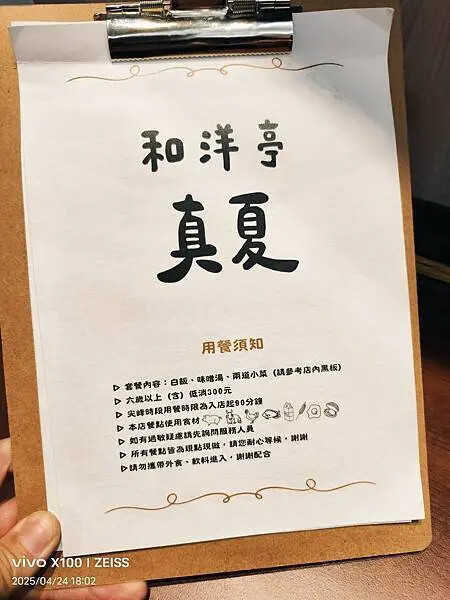 和洋亭
真夏
用餐須知
▷ 套餐內容：白飯、味噌湯、兩道小菜 (請參考店內黑板)
▷ 六歲以上 (含) 低消300元
▷ 尖峰時段用餐時限為入店起90分鐘
▷ 本店餐點使用食材
▷ 如有過敏疑慮請先詢問服務人員
▷ 所有餐點皆為現點現做，請您耐心等候，謝謝
▷請勿攜帶外食、飲料進入，謝謝配合
vivo X100 | ZEISS
2025/04/24 18:02